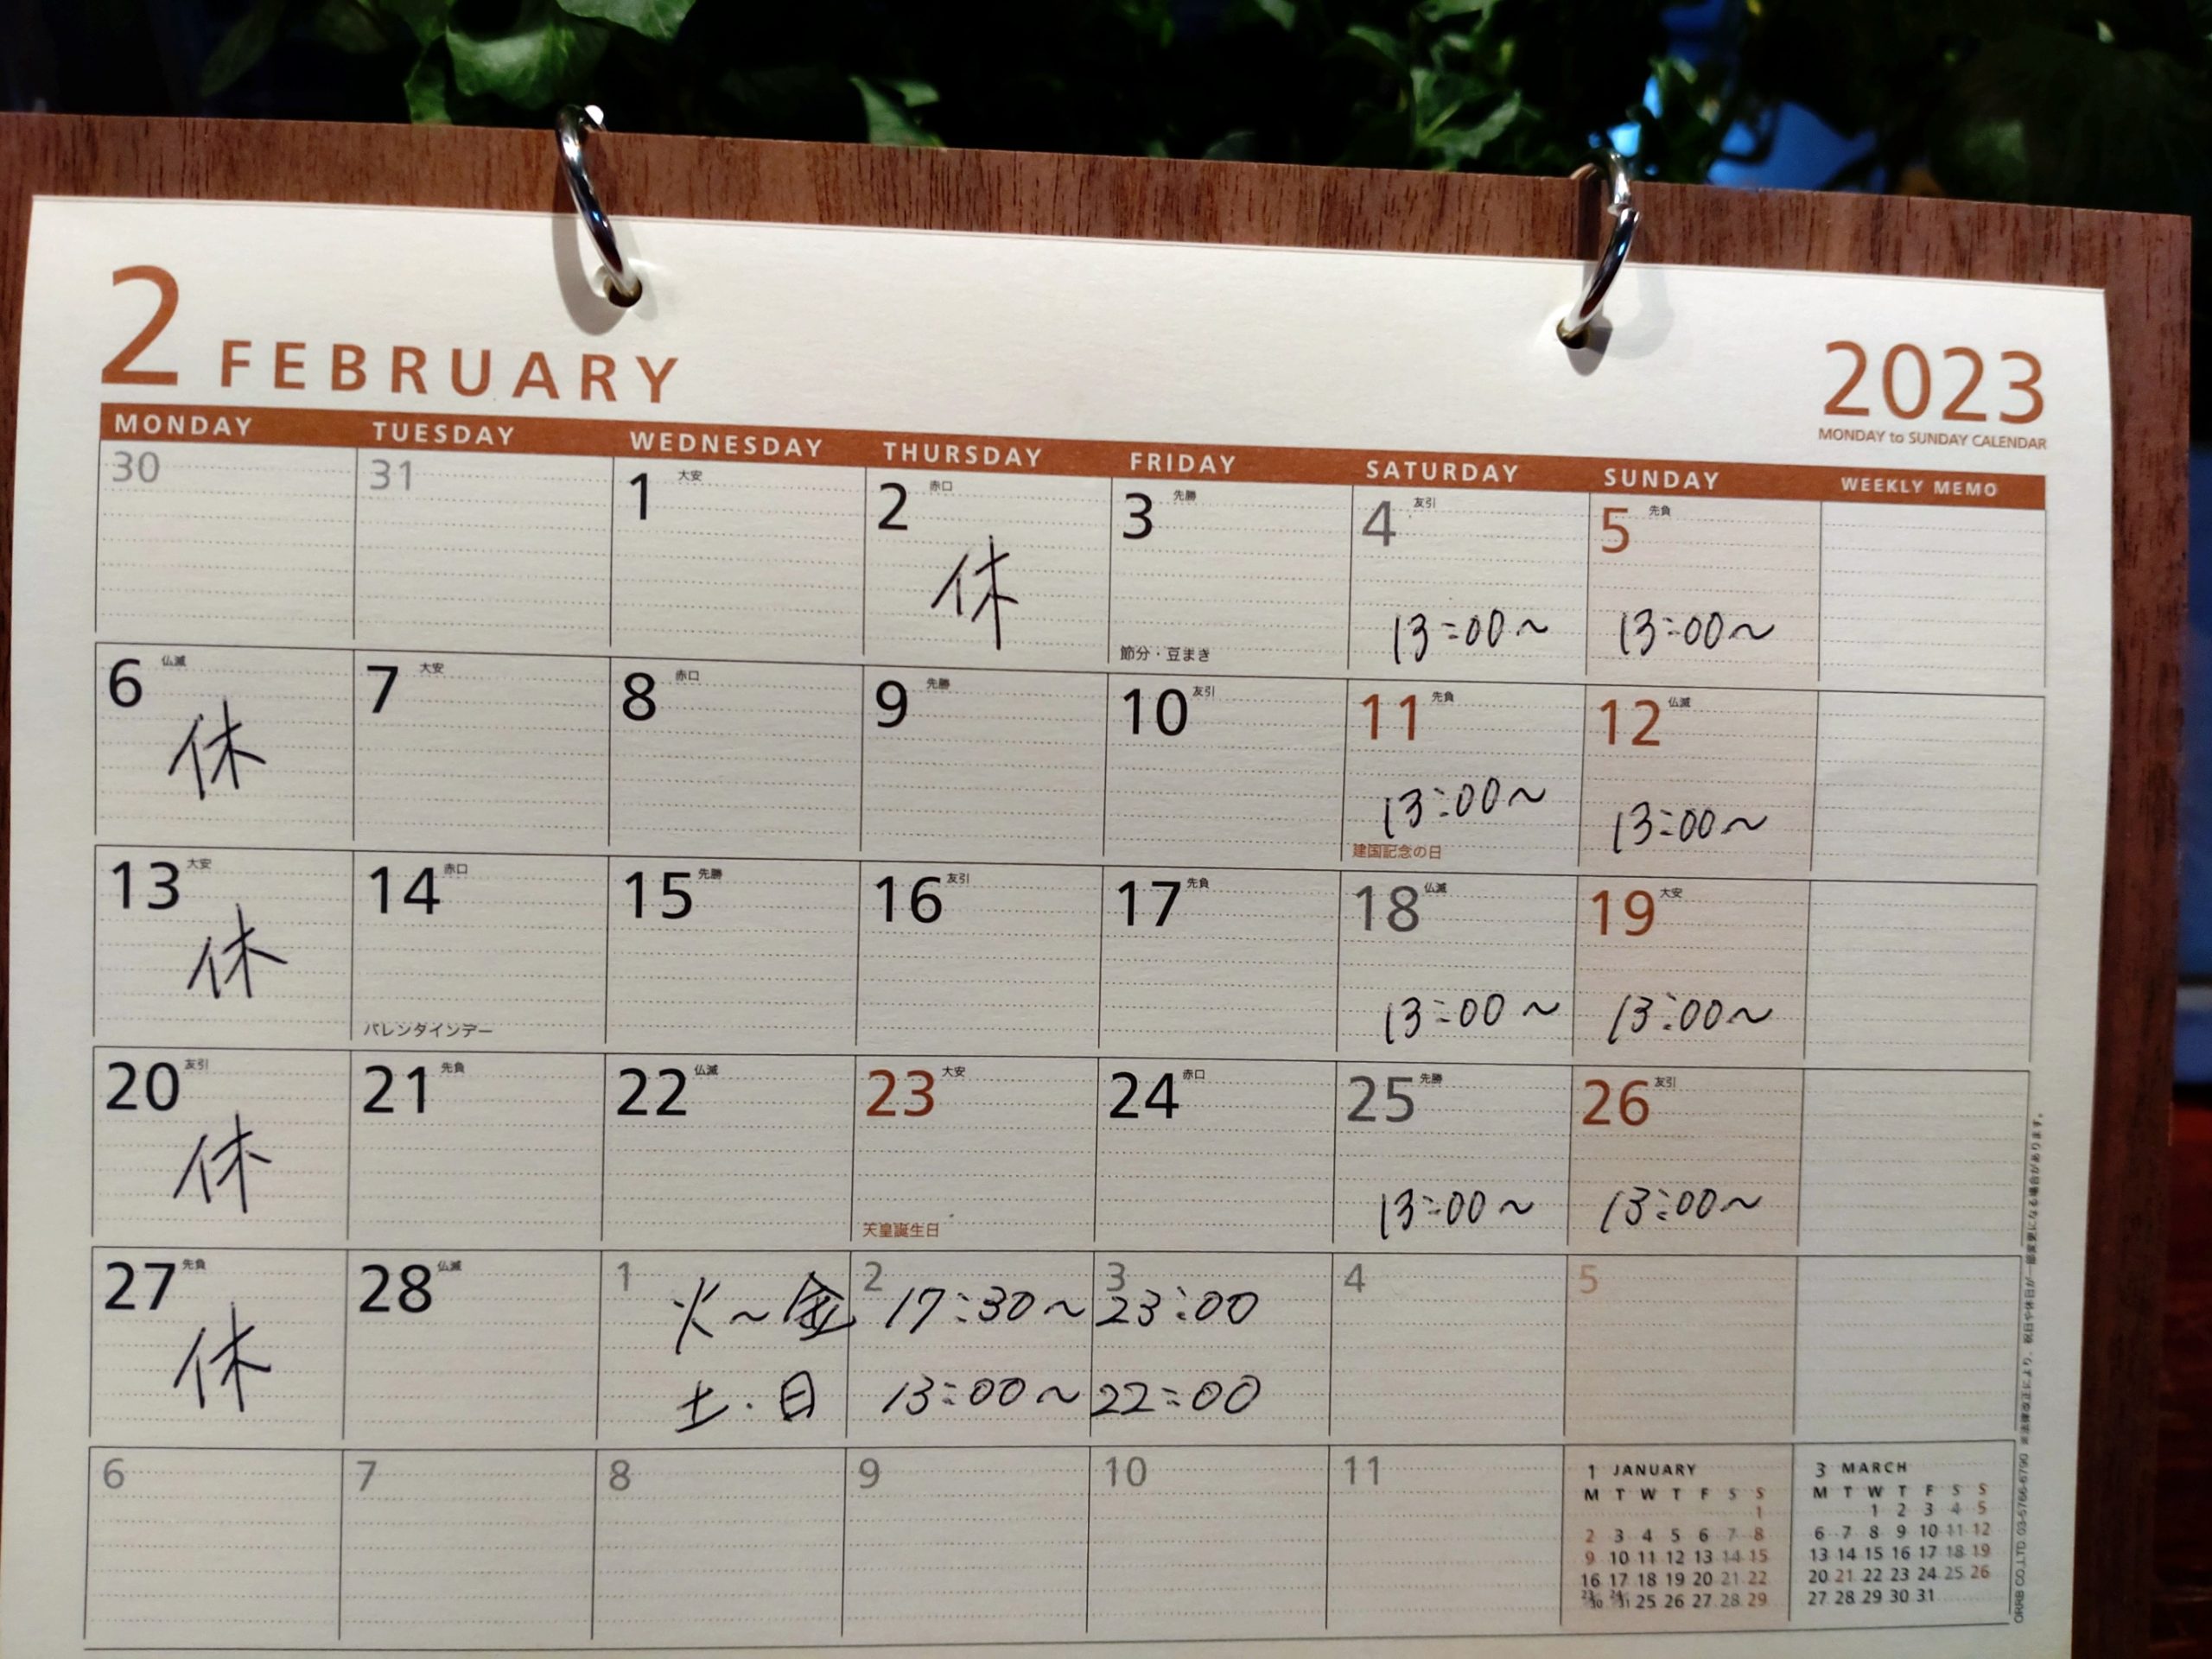 2 FEBRUARY
2023
MONDAY to SUNDAY CALENDAR
MONDAY TUESDAY WEDNESDAY THURSDAY FRIDAY SATURDAY SUNDAY WEEKLY MEMO
30 31 1 大安 2 赤口 3 先勝 4 友引 5 先負
休
節分・豆まき
13:00〜 13:00〜
6 仏滅 7 大安 8 赤口 9 先勝 10 友引 11 先負 12 仏滅
休
13:00〜 13:00〜
建国記念の日
13 大安 14 赤口 15 先勝 16 友引 17 先負 18 仏滅 19 大安
休
13:00〜 13:00〜
バレンタインデー
20 友引 21 先負 22 仏滅 23 大安 24 赤口 25 先勝 26 友引
休
13:00〜 13:00〜
天皇誕生日
27 先負 28 仏滅 1 2 3 4 5
休
火〜金 17:30〜23:00
土・日 13:00〜22:00
6 7 8 9 10 11
1 JANUARY
M T W T F S S
1
2 3 4 5 6 7 8
9 10 11 12 13 14 15
16 17 18 19 20 21 22
23/30 24/31 25 26 27 28 29
3 MARCH
M T W T F S S
1 2 3 4 5
6 7 8 9 10 11 12
13 14 15 16 17 18 19
20 21 22 23 24 25 26
27 28 29 30 31
ORRB CO.,LTD. 03-5766-6790 ※法律改正により、祝日や休日が一部変更になる場合があります。